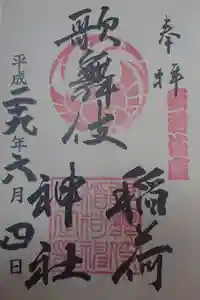 奉拝
歌舞伎
稲荷
神社
平成二十九年六月四日